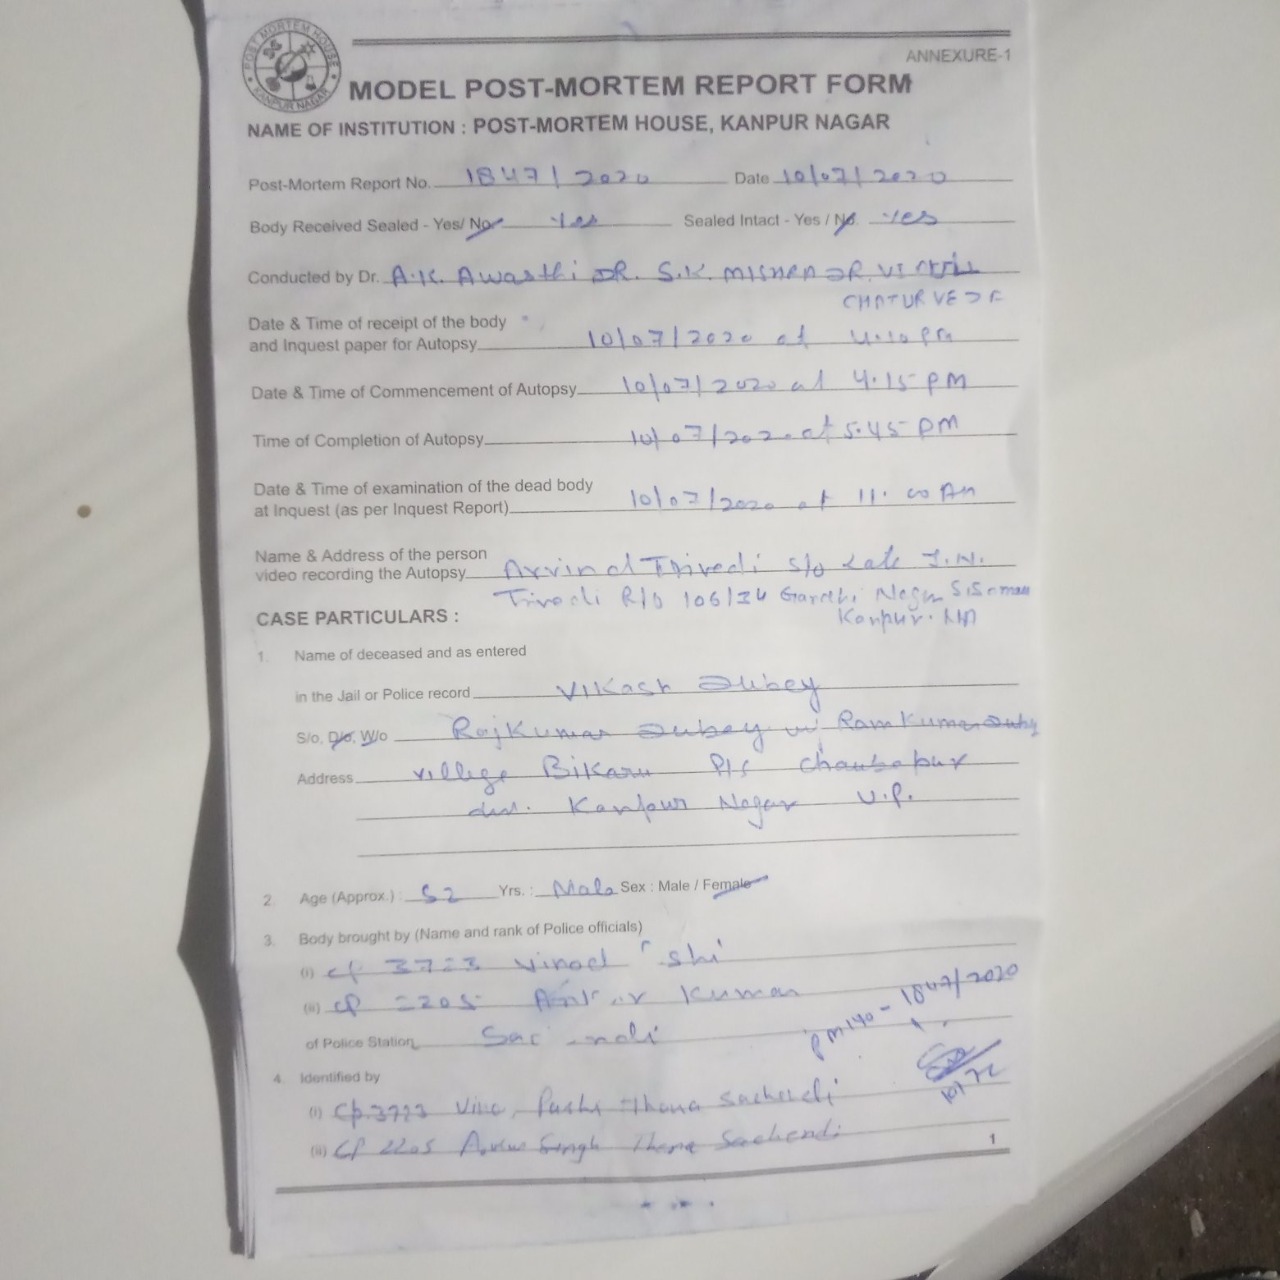 POST MORTEM HOUSE
KANPUR NAGAR
ANNEXURE-1
MODEL POST-MORTEM REPORT FORM
NAME OF INSTITUTION : POST-MORTEM HOUSE, KANPUR NAGAR
Post-Mortem Report No. 1847/2020 Date 10/07/2020
Body Received Sealed - Yes/ No Yes Sealed Intact - Yes / No Yes
Conducted by Dr. A.K. Awasthi DR. S.K. MISHRA DR.
CHATURVEDI
Date & Time of receipt of the body
and Inquest paper for Autopsy 10/07/2020 at 4.10 PM
Date & Time of Commencement of Autopsy 10/07/2020 at 4.15 PM
Time of Completion of Autopsy 10/07/2020 at 5.45 PM
Date & Time of examination of the dead body
at Inquest (as per Inquest Report) 10/07/2020 at 11.00 AM
Name & Address of the person
video recording the Autopsy Arvind Trivedi S/o Late J.N.
Trivedi R/o Nagar
Kanpur.
CASE PARTICULARS :
1. Name of deceased and as entered
in the Jail or Police record Vikash Dubey
S/o, D/o, W/o Rajkumar Dubey Ramkumar Dubey
Address village Bikaru P/S
Kanpur Nagar U.P.
2. Age (Approx.) : 52 Yrs. : Male Sex : Male / Female
3. Body brought by (Name and rank of Police officials)
(i) CP Vinod
(ii) CP 2205 Kumar
of Police Station
PM No - 1847/2020
4. Identified by
(i) CP. Thana Sachendi
(ii) CP 2205 Singh Thana Sachendi
1